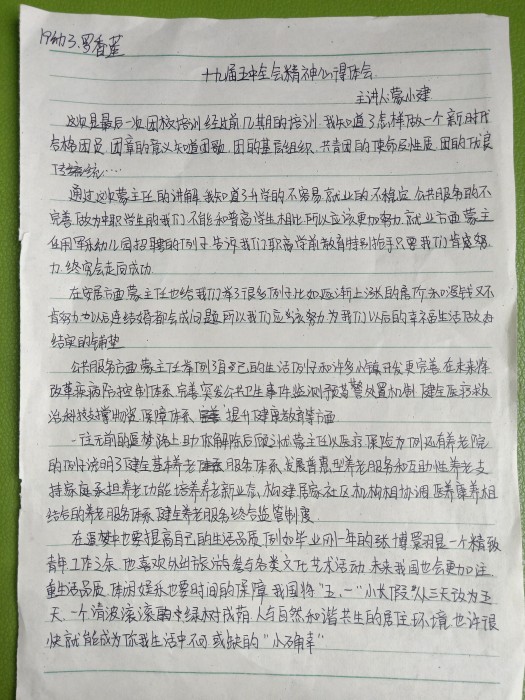 19幼3.罗香蓝
十九届五中全会精神心得体会
主讲人:蒙小建
这次是最后一次团校培训经过前几期的培训 我知道了怎样做一个新时代
合格团员 团章的意义知道团歌 团的基层组织 共青团的使命层性质 团的优良
传统……
通过这次蒙主任的讲解 我知道了升学的不容易就业的不稳定 公共服务的不
完善 做为中职学生的我们不能和普高学生相比所以应该更加努力 就业方面 蒙主
任用军永幼儿园招聘的例子告诉我们职高学前教育特别抢手只要我们肯定努
力 终究会走向成功.
在安居方面蒙主任也给我们举了很多例子比如逐渐上涨的居价 如果我又不
肯努力 加以后连结婚都会成问题 所以我们应当该努力 为我们以后的幸福生活做为
结实的铺垫
公共服务方面 蒙主任举例了自己的生活例子和许多 开发更完善 在未来将
改革疾病防控制体系 完善突发公共卫生事件监测预警处置机制 健全医疗救
治科技支撑物资保障体系 提升健康教育等方面
一往无前的追梦路上助你解除后顾之忧 蒙主任以医疗保险为例还有养老院
的例子说明了健全基本养老服务体系 发展普惠型养老服务和互助性养老 支
持家庭承担养老功能 培养养老新业态, 构建居家社区机构相协调 医养康养相
结合的养老服务体系 健全养老服务综合监管制度.
在追梦中也要提高自己的生活品质 例如毕业刚一年的张博翼羽是一个精致
青年 工作之余 他喜欢外出旅游 参与各类文化艺术活动 未来我国也会更加注
重生活品质 休闲娱乐也要时间的保障 我国将"五.一"小长假"从三天改为五
天. 一个清波滚滚 绿树成荫 人与自然和谐共生的居住环境 也许很
快就能成为你我生活中不可或缺的"小确幸"